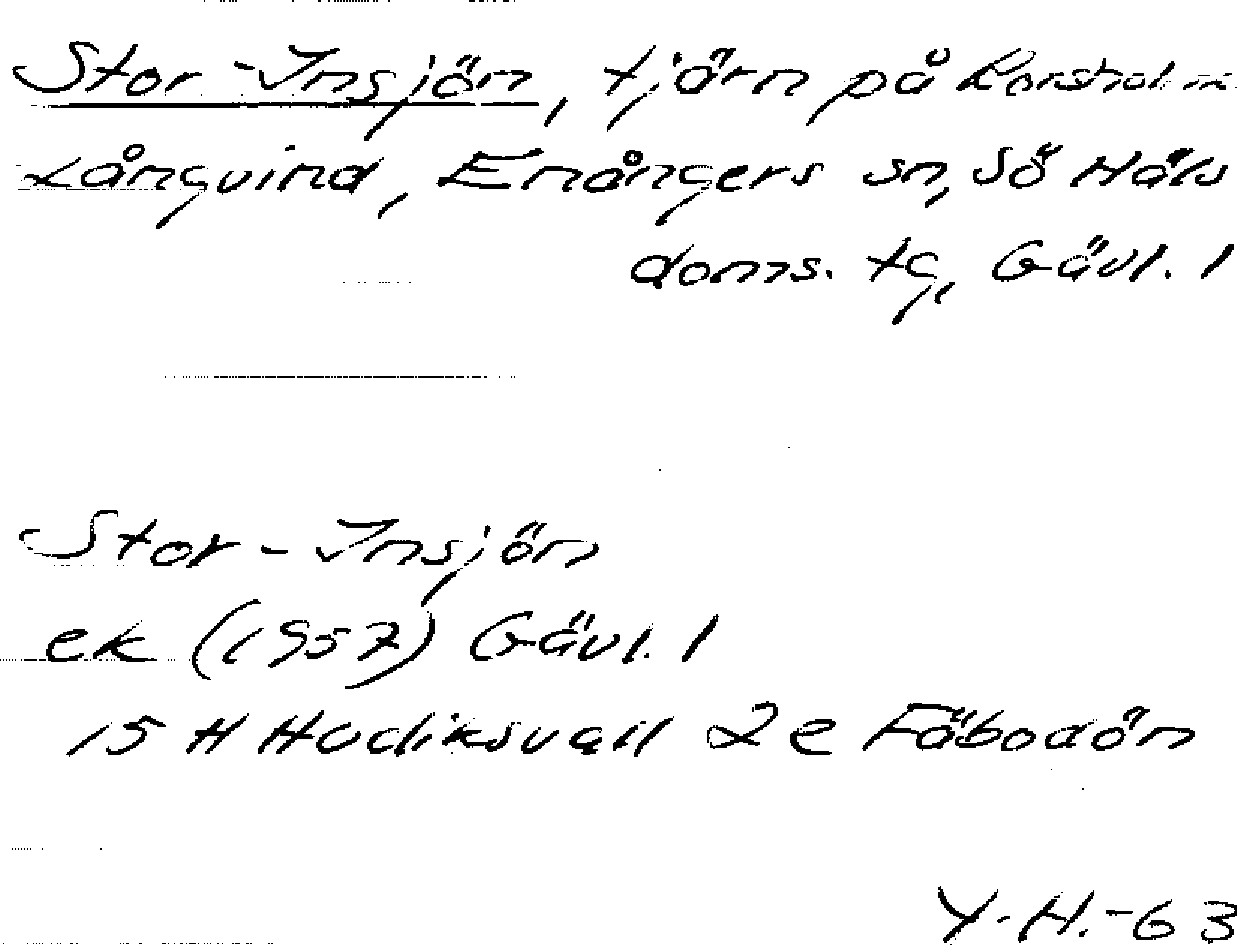 Stor-Insjön, tjärn på Korsholm
Långvind, Enångers sn, Sö Häls
doms. tg, Gävl. l
Stor-Insjön
ek (1957) Gävl. l
15 H Hudiksvall 2e Fäbodön
Y.H.-63